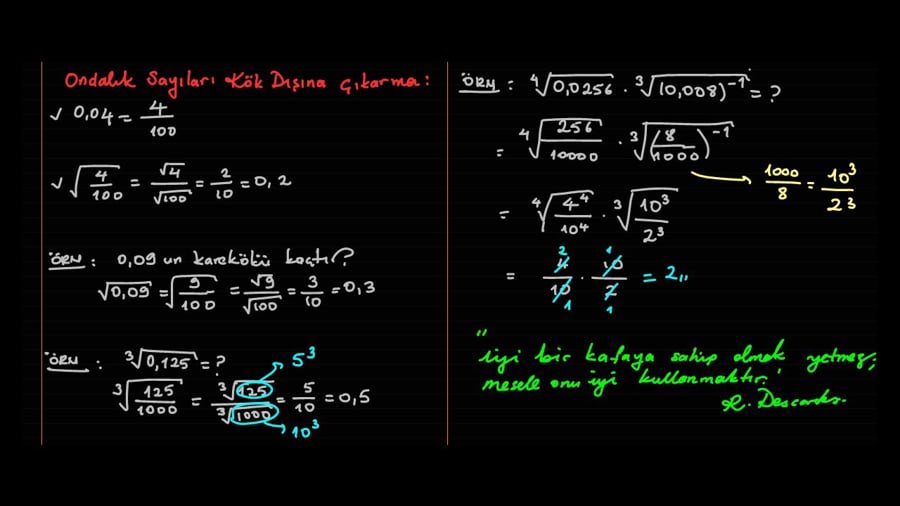 Ondalık Sayıları Kök Dışına Çıkarma:
√ 0,04 = 4/100
√ √(4/100) = √4/√100 = 2/10 = 0,2
ÖRN : 0,09 un karekökü kaçtır?
√0,09 = √(9/100) = √9/√100 = 3/10 = 0,3
ÖRN : ³√0,125 = ?
5³
³√(125/1000) = ³√125/³√1000 = 5/10 = 0,5
10³
ÖRN : ⁴√0,0256 · ³√(0,008)⁻¹ = ?
= ⁴√(256/10000) · ³√(8/1000)⁻¹
1000/8 = 10³/2³
= ⁴√(4⁴/10⁴) · ³√(10³/2³)
2 1
= 4/10 · 10/2 = 2,,
1 1
"iyi bir kafaya sahip olmak yetmez;
mesele onu iyi kullanmaktır."
R. Descartes.